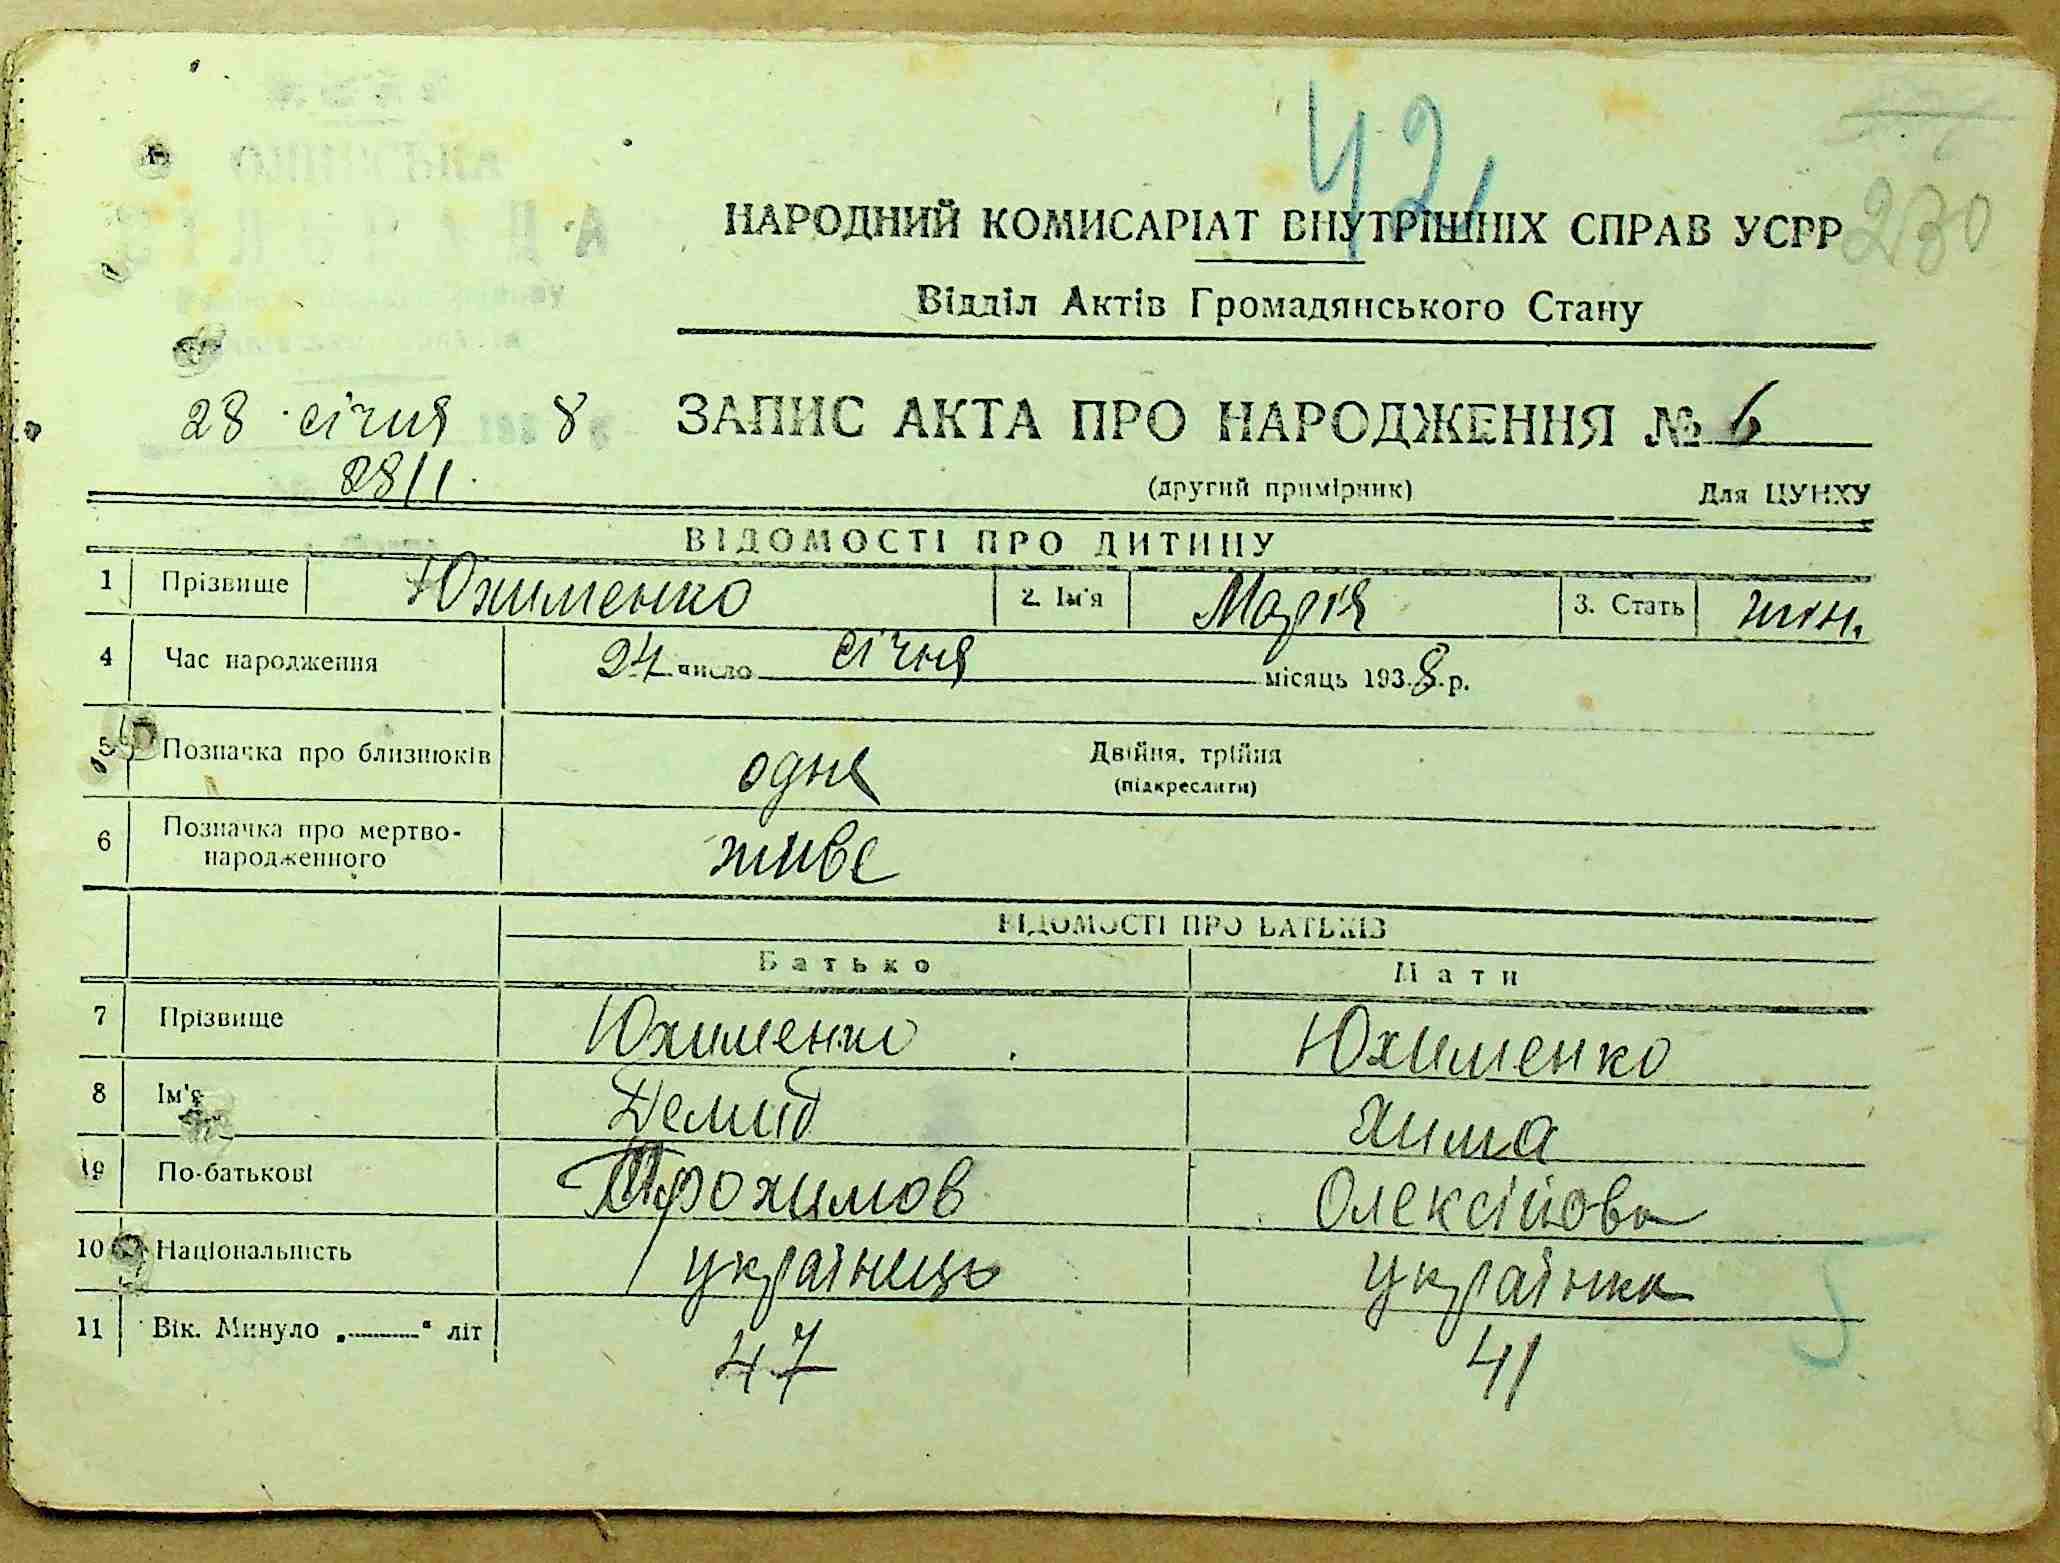 42
НАРОДНИЙ КОМИСАРІАТ ВНУТРІШНІХ СПРАВ УСРР
230
Відділ Актів Громадянського Стану
28 січня 8
ЗАПИС АКТА ПРО НАРОДЖЕННЯ № 6
28/I.
(другий примірник) Для ЦУНХУ
ВІДОМОСТІ ПРО ДИТИНУ
1 Прізвище Юхименко 2. Ім'я Марія 3. Стать жін.
4 Час народження 24 число січня місяць 1938 р.
5 Позначка про близнюків одне Двійня, трійня
(підкреслити)
6 Позначка про мертво-
народженного живе
ВІДОМОСТІ ПРО БАТЬКІВ
Батько Мати
7 Прізвище Юхименко Юхименко
8 Ім'я Демид Хима
9 По-батькові Трохимов Олексійова
10 Національність українець українка
11 Вік. Минуло „ “ літ 47 41